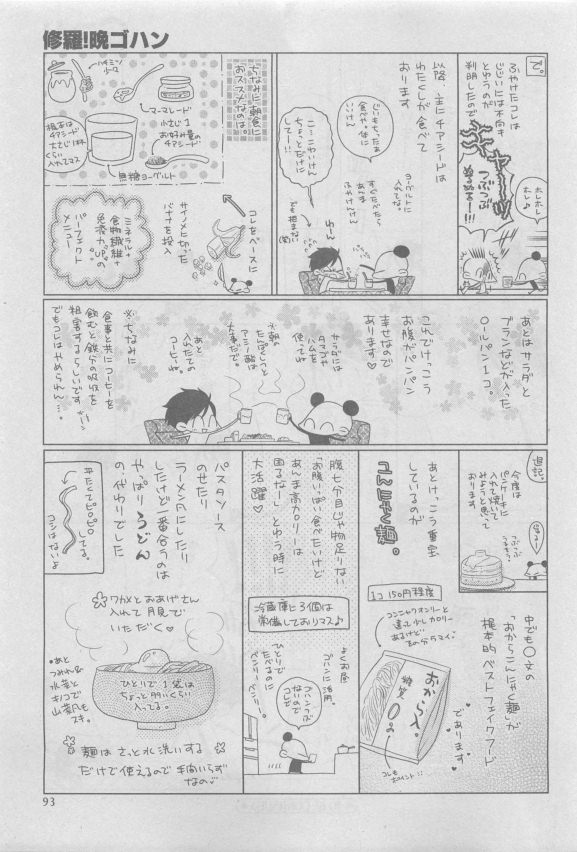 修羅!晩ゴハン
で。
ふやけたコレは
じじいには不向き
とゆうのが
判明したので
ギャーッ
つぶつぶ
ぬるぬるー!!!
ホレホレ
ホレ♪
以降、主にチアシードは
わたくしが食べて
おります
じいもちったぁ
食べや。体に
いいけん
こ…こわいけん
ちょっとだけに
してー!!
ヨーグルトに
入れてな。
すぐたべたら
あんま
ふやけんけん
わん
でも拒まない(笑)
ちなみに朝食に
おススメなのは。
ハチミツ
小1
マーマレード
小さじ1
お好み量の
チアシード
梶本は
チアシード
大さじ1杯
くらい
入れてマス
無糖ヨーグルト
コレをベースに
サイノメに切った
バナナを投入
ミネラル+
食物繊維+
免疫力UPの
パーフェクト
メニュー
あとはサラダと
ブランなどが入った
ロールパン1コ。
これでけっこう
お腹がパンパン
幸せなので
あります♡
サラダには
タマゴや
ハムを
使ってね
※朝の
たんぱくしつと
アミノ酸は
大事だで。
あと
入れたての
コーヒーね。
※ちなみに
食事と共にコーヒーを
飲むと鉄分の吸収を
阻害するらしいです
でもコレはやめられん…。
追記。
今度は
パンケーキに
入れて焼いて
みようと思って
おります
つぶつぶ
うまそう
あとけっこう重宝
しているのが
こんにゃく麺。
1コ 150円程度
コンニャクオンリーと
違って少しカロリー
あるけど
その分ウマイ。
中でも○文の
「おからこんにゃく麺」が
梶本的ベストフェイクフード
であります♥
おから入。
糖質
0g
コレも
ポイント!!
腹七分目じゃ物足りない
「お腹いっぱい食べたいけど
あんま高カロリーは
困るなー」とゆう時に
大活躍♡
冷蔵庫に3個は
常備しておりマス♪
よくお昼
ゴハンに活用。
ひとりで
たべるのに
ベンリーベンリー。
コレで
パスタソース
のせたり
ラーメン風にしたり
したけど一番合うのは
やっぱりうどん
の代わりでした
平たくてピロピロ
してる。
コシはないよ
ワカメとおあげさん
入れて月見で
いただく♡
ひとりで1袋は
ちょっと多いくらい
入ってる。
•あと
つみれ&
水菜と
キノコで
山菜風も
スキ。
麺はさっと水洗いする
だけで使えるので手間いらず
なの♡
93